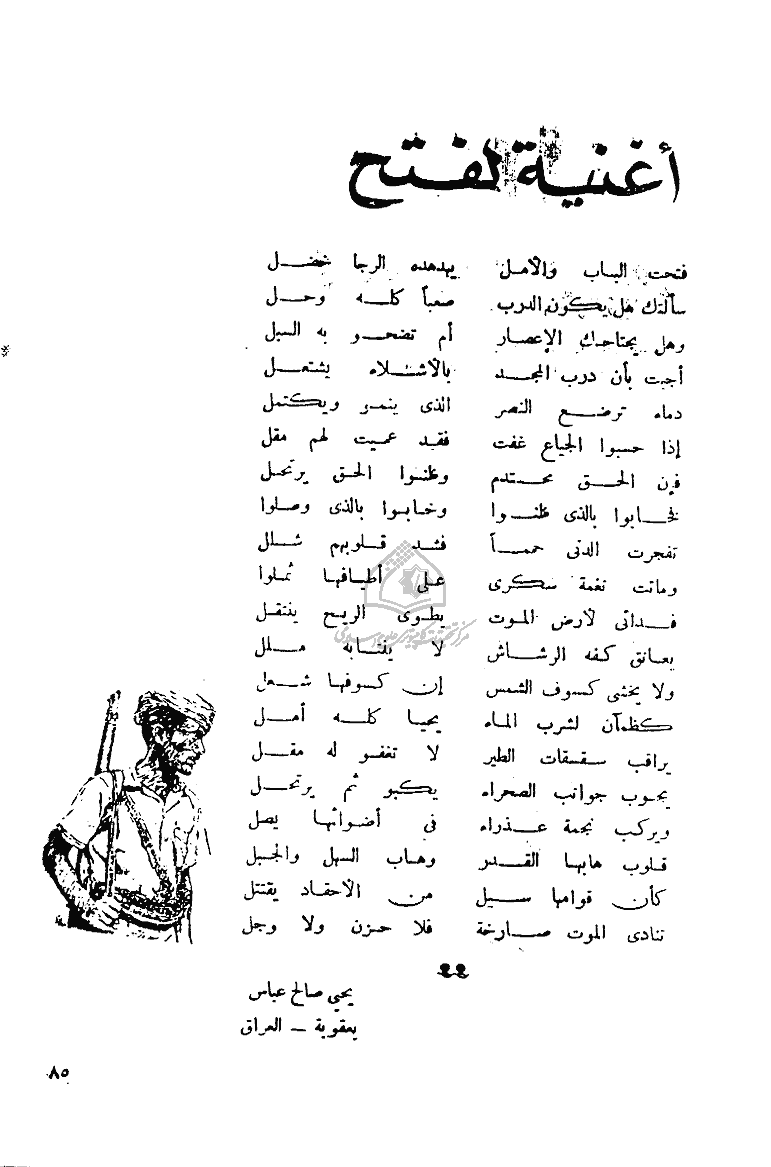 أغنية لفتح
فتحت الباب والأمل يهدهده الرجا خضل
سألتك هل يكون الدرب صعباً كله وحل
وهل يجتاحك الإعصار أم تضحو به السبل
أجبت بأن درب المجد بالأشلاء يشتعل
دماء ترضع النصر الذى ينمو ويكتمل
إذا حسبوا الجياع غفت فقد عميت لهم مقل
فإن الحق محتدم وظنوا الحق يرتحل
فخابوا بالذى ظنوا وخابوا بالذى وصلوا
تفجرت الدنى حمماً فشد قلوبهم شلل
وماتت نغمة سكرى على أطيافها ثملوا
فدائى لأرض الموت يطوى الريح ينتقل
يعانق كفه الرشاش لا ينتابه ملل
ولا يخشى كسوف الشمس إن كسوفها شعل
كظمآن لشرب الماء يحيا كله أمل
يراقب سقسقات الطير لا تغفو له مقل
يجوب جوانب الصحراء يكبو ثم يرتحل
ويركب نجمة عذراء فى أضوائها يصل
قلوب هابها القدر وهاب السهل والجبل
كأن قوامها سيل من الأحقاد يقتتل
تنادى الموت صارخة فلا حزن ولا وجل
يحيى صالح عباس
يعقوبة – العراق
٨٥